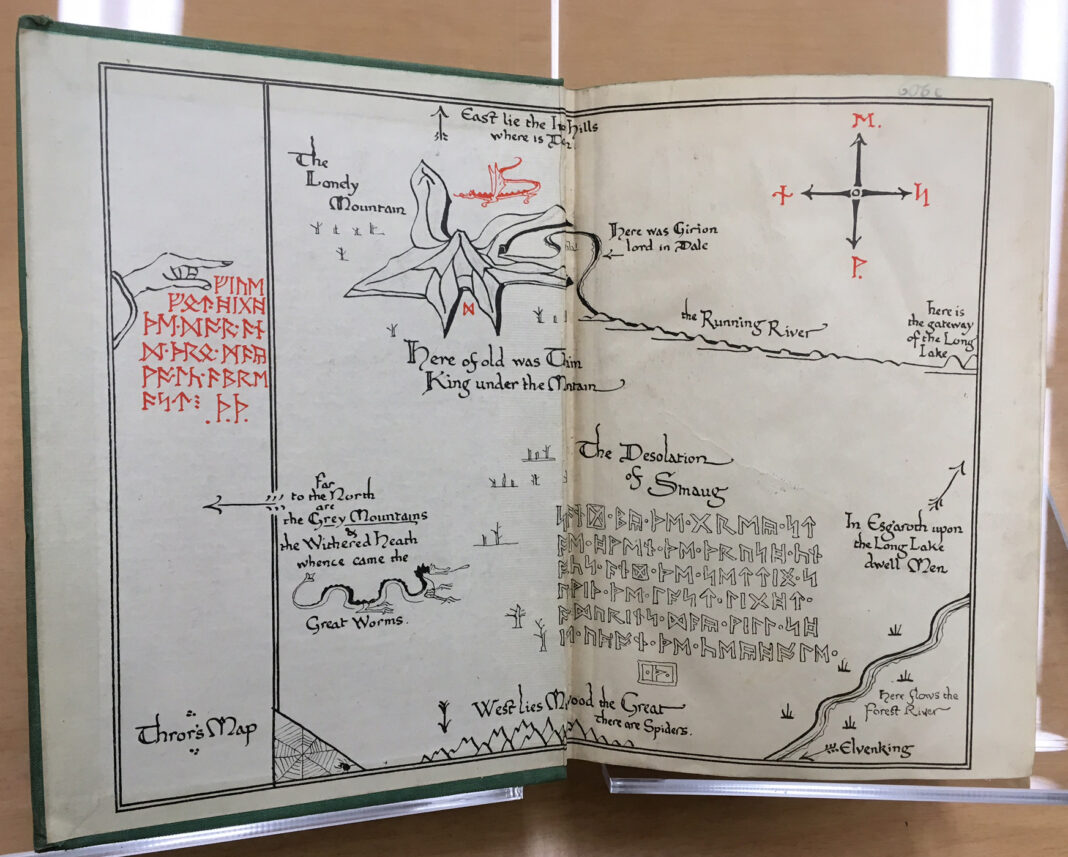 East lie the Hills
where is
The
Lonely
Mountain
ᛖ.
ᚾ
ᛋ
ᚹ.
Here was Girion
lord in Dale
ᚠᛁᚢᛖ
ᚠᚩᛏ᛫ᚻᛁᚷᚻ
ᚦᛖ᛫ᛞᚩᚱ᛫ᚪᚾ
ᛞ᛫ᚦᚱᛟ᛫ᛗᚪᚣ
ᚹᚪᛚᚳ᛫ᚪᛒᚱᛖ
ᚪᛋᛏ⁝
.ᚦ.ᚦ.
ᛞ
the Running River
here is
the gateway
of the Long
Lake
Here of old was
King under the
The Desolation
of Smaug
᛫ᛒᚣ᛫ᚦᛖ᛫ᚷᚱᛖᚣ᛫ᛋᛏ
᛫ᚻᚹᛖᚾ᛫ᚦᛖ᛫ᚦᚱᚢᛋᚻ᛫ᚳᚾ
᛫ᚪᚾᛞ᛫ᚦᛖ᛫ᛋᛖᛏᛏᛁᛝ᛫ᛋ
᛫ᚹᛁᚦ᛫ᚦᛖ᛫ᛚᚪᛋᛏ᛫ᛚᛁᚷᚻᛏ᛫
᛫ᛞᚢᚱᛁᚾᛋ᛫ᛞᚪᚣ᛫ᚹᛁᛚᛚ᛫ᛋᚻ
᛫ᚢᛈᚩᚾ᛫ᚦᛖ᛫ᚳᛖᚣᚻᚩᛚᛖ᛫
far
to the North
are
the Grey Mountains
&
the Withered Heath
whence came the
Great Worms.
In Esgaroth upon
the Long Lake
dwell Men
Here flows the
Forest River
Elvenking
West lies the Great
there are Spiders.
Thror's Map